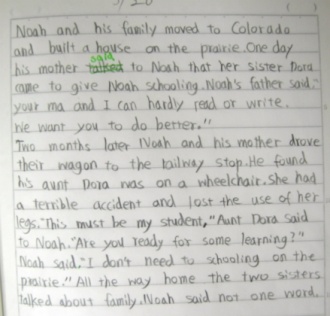 3/20
Noah and his family moved to Colorado
and built a house on the prairie. One day
said
his mother talked to Noah that her sister Dora
came to give Noah schooling. Noah's father said."
your ma and I can hardly read or write.
We want you to do better."
Two months later Noah and his mother drove
their wagon to the tailway stop. He found
his aunt Dora was on a wheelchair. She had
a terrible accident and lost the use of her
legs. "This must be my student," Aunt Dora said
to Noah. "Are you ready for some learning?"
Noah said. "I don't need to schooling on the
prairie." All the way home the two sisters
talked about family. Noah said not one word.